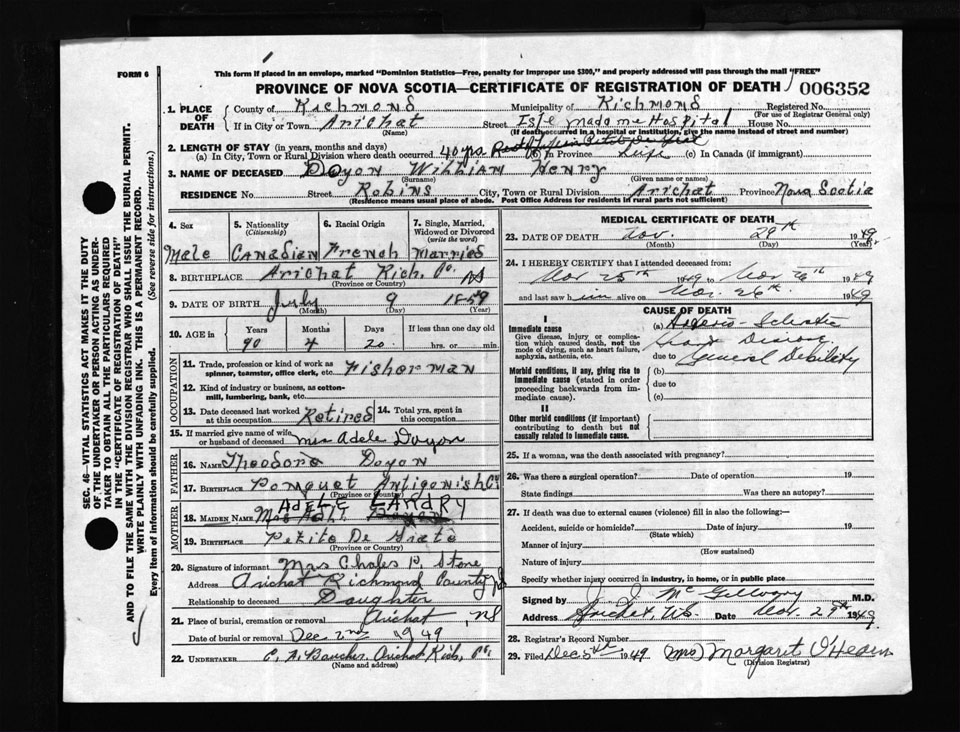 FORM 6
This form if placed in an envelope, marked "Dominion Statistics—Free, penalty for improper use $300," and properly addressed will pass through the mail "FREE"
PROVINCE OF NOVA SCOTIA—CERTIFICATE OF REGISTRATION OF DEATH 006352
SEC. 46—VITAL STATISTICS ACT MAKES IT THE DUTY
OF THE UNDERTAKER OR PERSON ACTING AS UNDER-
TAKER TO OBTAIN ALL THE PARTICULARS REQUIRED
IN THE "CERTIFICATE OF REGISTRATION OF DEATH"
AND TO FILE THE SAME WITH THE DIVISION REGISTRAR WHO SHALL ISSUE THE BURIAL PERMIT.
WRITE PLAINLY WITH UNFADING INK. THIS IS A PERMANENT RECORD.
Every item of information should be carefully supplied. (See reverse side for instructions.)
1. PLACE OF DEATH County of Richmond Municipality of Richmond Registered No.
(For use of Registrar General only)
If in City or Town Arichat Street Isle Madame Hospital House No.
(Name) (If death occurred in a hospital or institution, give the name instead of street and number)
2. LENGTH OF STAY (in years, months and days)
(a) In City, Town or Rural Division where death occurred 40 yrs (b) In Province Life (c) In Canada (if immigrant)
3. NAME OF DECEASED Doyon William Henry
(Surname) (Given name or names)
RESIDENCE No. Street Robins City, Town or Rural Division Arichat Province Nova Scotia
(Residence means usual place of abode. Post Office Address for residents in rural parts not sufficient)
4. Sex 5. Nationality (Citizenship) 6. Racial Origin 7. Single, Married, Widowed or Divorced (write the word)
Male Canadian French Married
8. BIRTHPLACE Arichat Rich. Co. NS
(Province or Country)
9. DATE OF BIRTH July 9 1859
(Month) (Day) (Year)
10. AGE in Years Months Days If less than one day old
90 4 20 hrs. or min.
OCCUPATION
11. Trade, profession or kind of work as spinner, teamster, office clerk, etc. Fisherman
12. Kind of industry or business, as cotton-mill, lumbering, bank, etc.
13. Date deceased last worked at this occupation Retired 14. Total yrs. spent in this occupation
15. If married give name of wife or husband of deceased Mrs Adele Doyon
FATHER
16. NAME Theodore Doyon
17. BIRTHPLACE Pomquet Antigonish Co
(Province or Country)
MOTHER
18. MAIDEN NAME ADELE LANDRY
19. BIRTHPLACE Petite De Grate
(Province or Country)
20. Signature of informant Mrs Chales P. Stone
Address Arichat Richmond County
Relationship to deceased Daughter
21. Place of burial, cremation or removal Arichat, NS
Date of burial or removal Dec 2nd 1949
22. UNDERTAKER Arichat Rich. Co.
(Name and address)
MEDICAL CERTIFICATE OF DEATH
23. DATE OF DEATH Nov. 29th 1949
(Month) (Day) (Year)
24. I HEREBY CERTIFY that I attended deceased from:
Nov 25th 1949 to Nov 26th 1949
and last saw him alive on Nov. 26th 1949
CAUSE OF DEATH
I
Immediate cause
Give disease, injury or complication which caused death, not the mode of dying, such as heart failure, asphyxia, asthenia, etc.
(a) Arterio-Sclerotic
Heart Disease
due to General Debility
Morbid conditions, if any, giving rise to immediate cause (stated in order proceeding backwards from immediate cause).
(b)
due to
(c)
II
Other morbid conditions (if important) contributing to death but not causally related to immediate cause.
25. If a woman, was the death associated with pregnancy?
26. Was there a surgical operation? Date of operation 19
State findings Was there an autopsy?
27. If death was due to external causes (violence) fill in also the following:—
Accident, suicide or homicide? Date of injury 19
(State which)
Manner of injury
(How sustained)
Nature of injury
Specify whether injury occurred in industry, in home, or in public place
Signed by McGillvary M.D.
Address Arichat, N.S. Date Nov. 29th 1949
28. Registrar's Record Number
29. Filed Dec 5th 1949 (Mrs) Margaret O'Hearn
(Division Registrar)